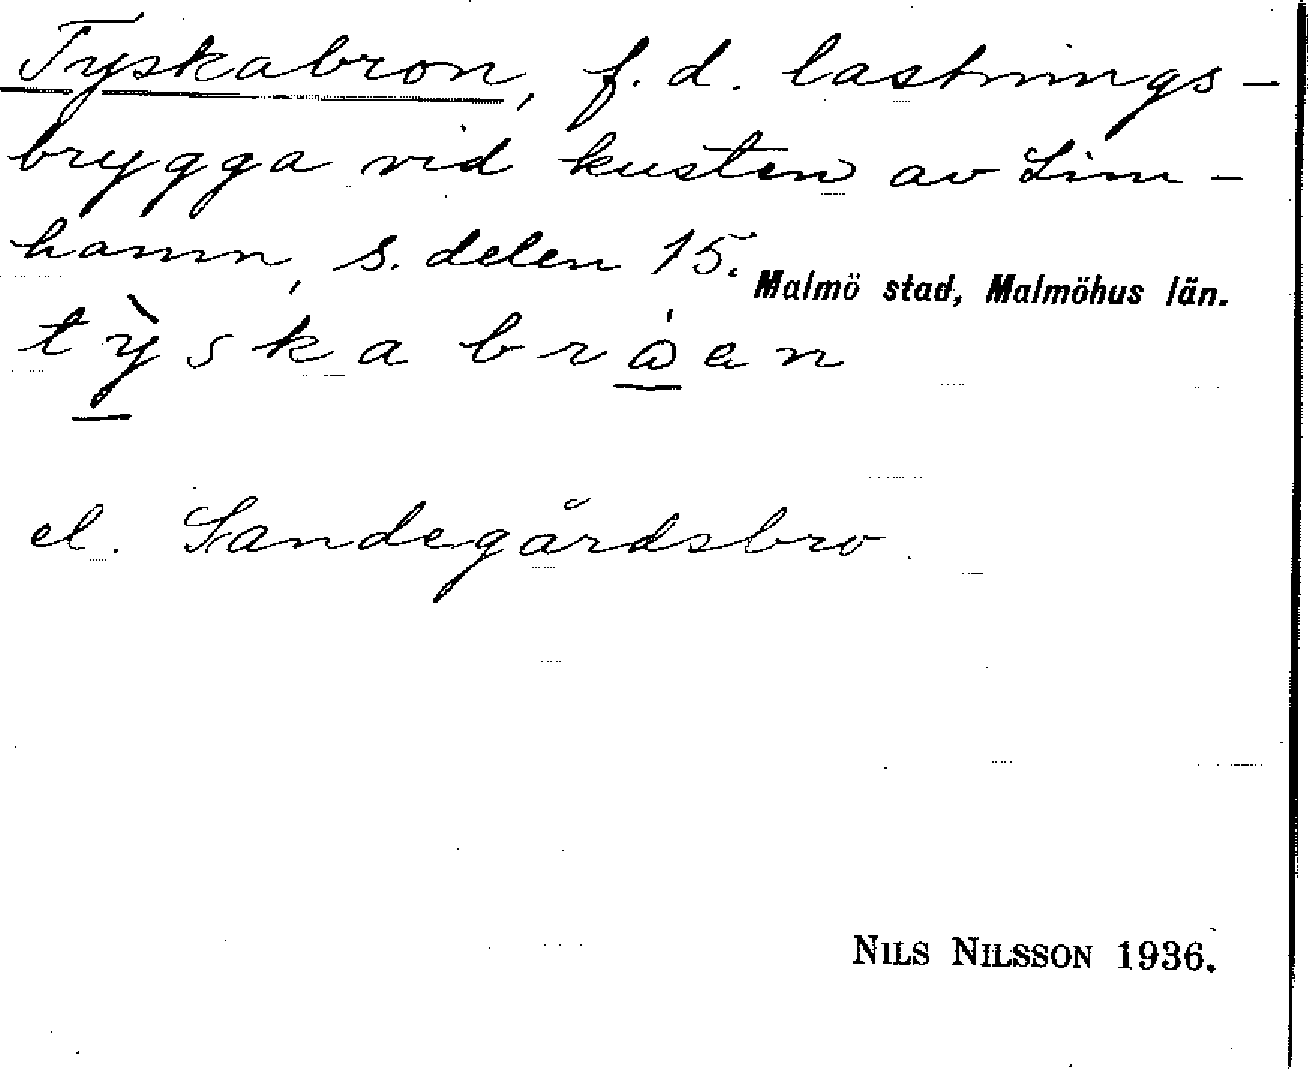 Tyskabron, f.d. lastnings-
brygga vid kusten av Lim-
hamn, s. delen 15.
Malmö stad, Malmöhus län.
tỳska bråen
el. Sandegårdsbro.
NILS NILSSON 1936.